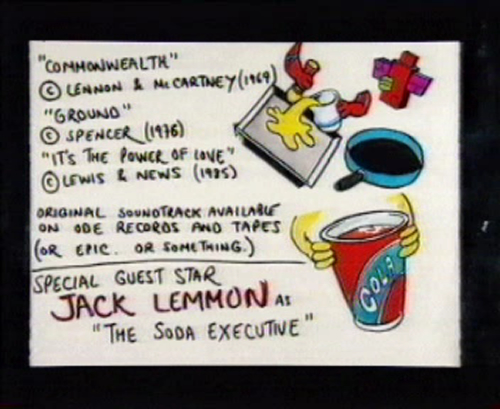 "COMMONWEALTH"
© LENNON & McCARTNEY (1969)
"GROUND"
© SPENCER (1976)
"IT'S THE POWER OF LOVE"
© LEWIS & NEWS (1985)
ORIGINAL SOUNDTRACK AVAILABLE
ON ODE RECORDS AND TAPES
(OR EPIC. OR SOMETHING.)
SPECIAL GUEST STAR
JACK LEMMON AS
"THE SODA EXECUTIVE"
COLA